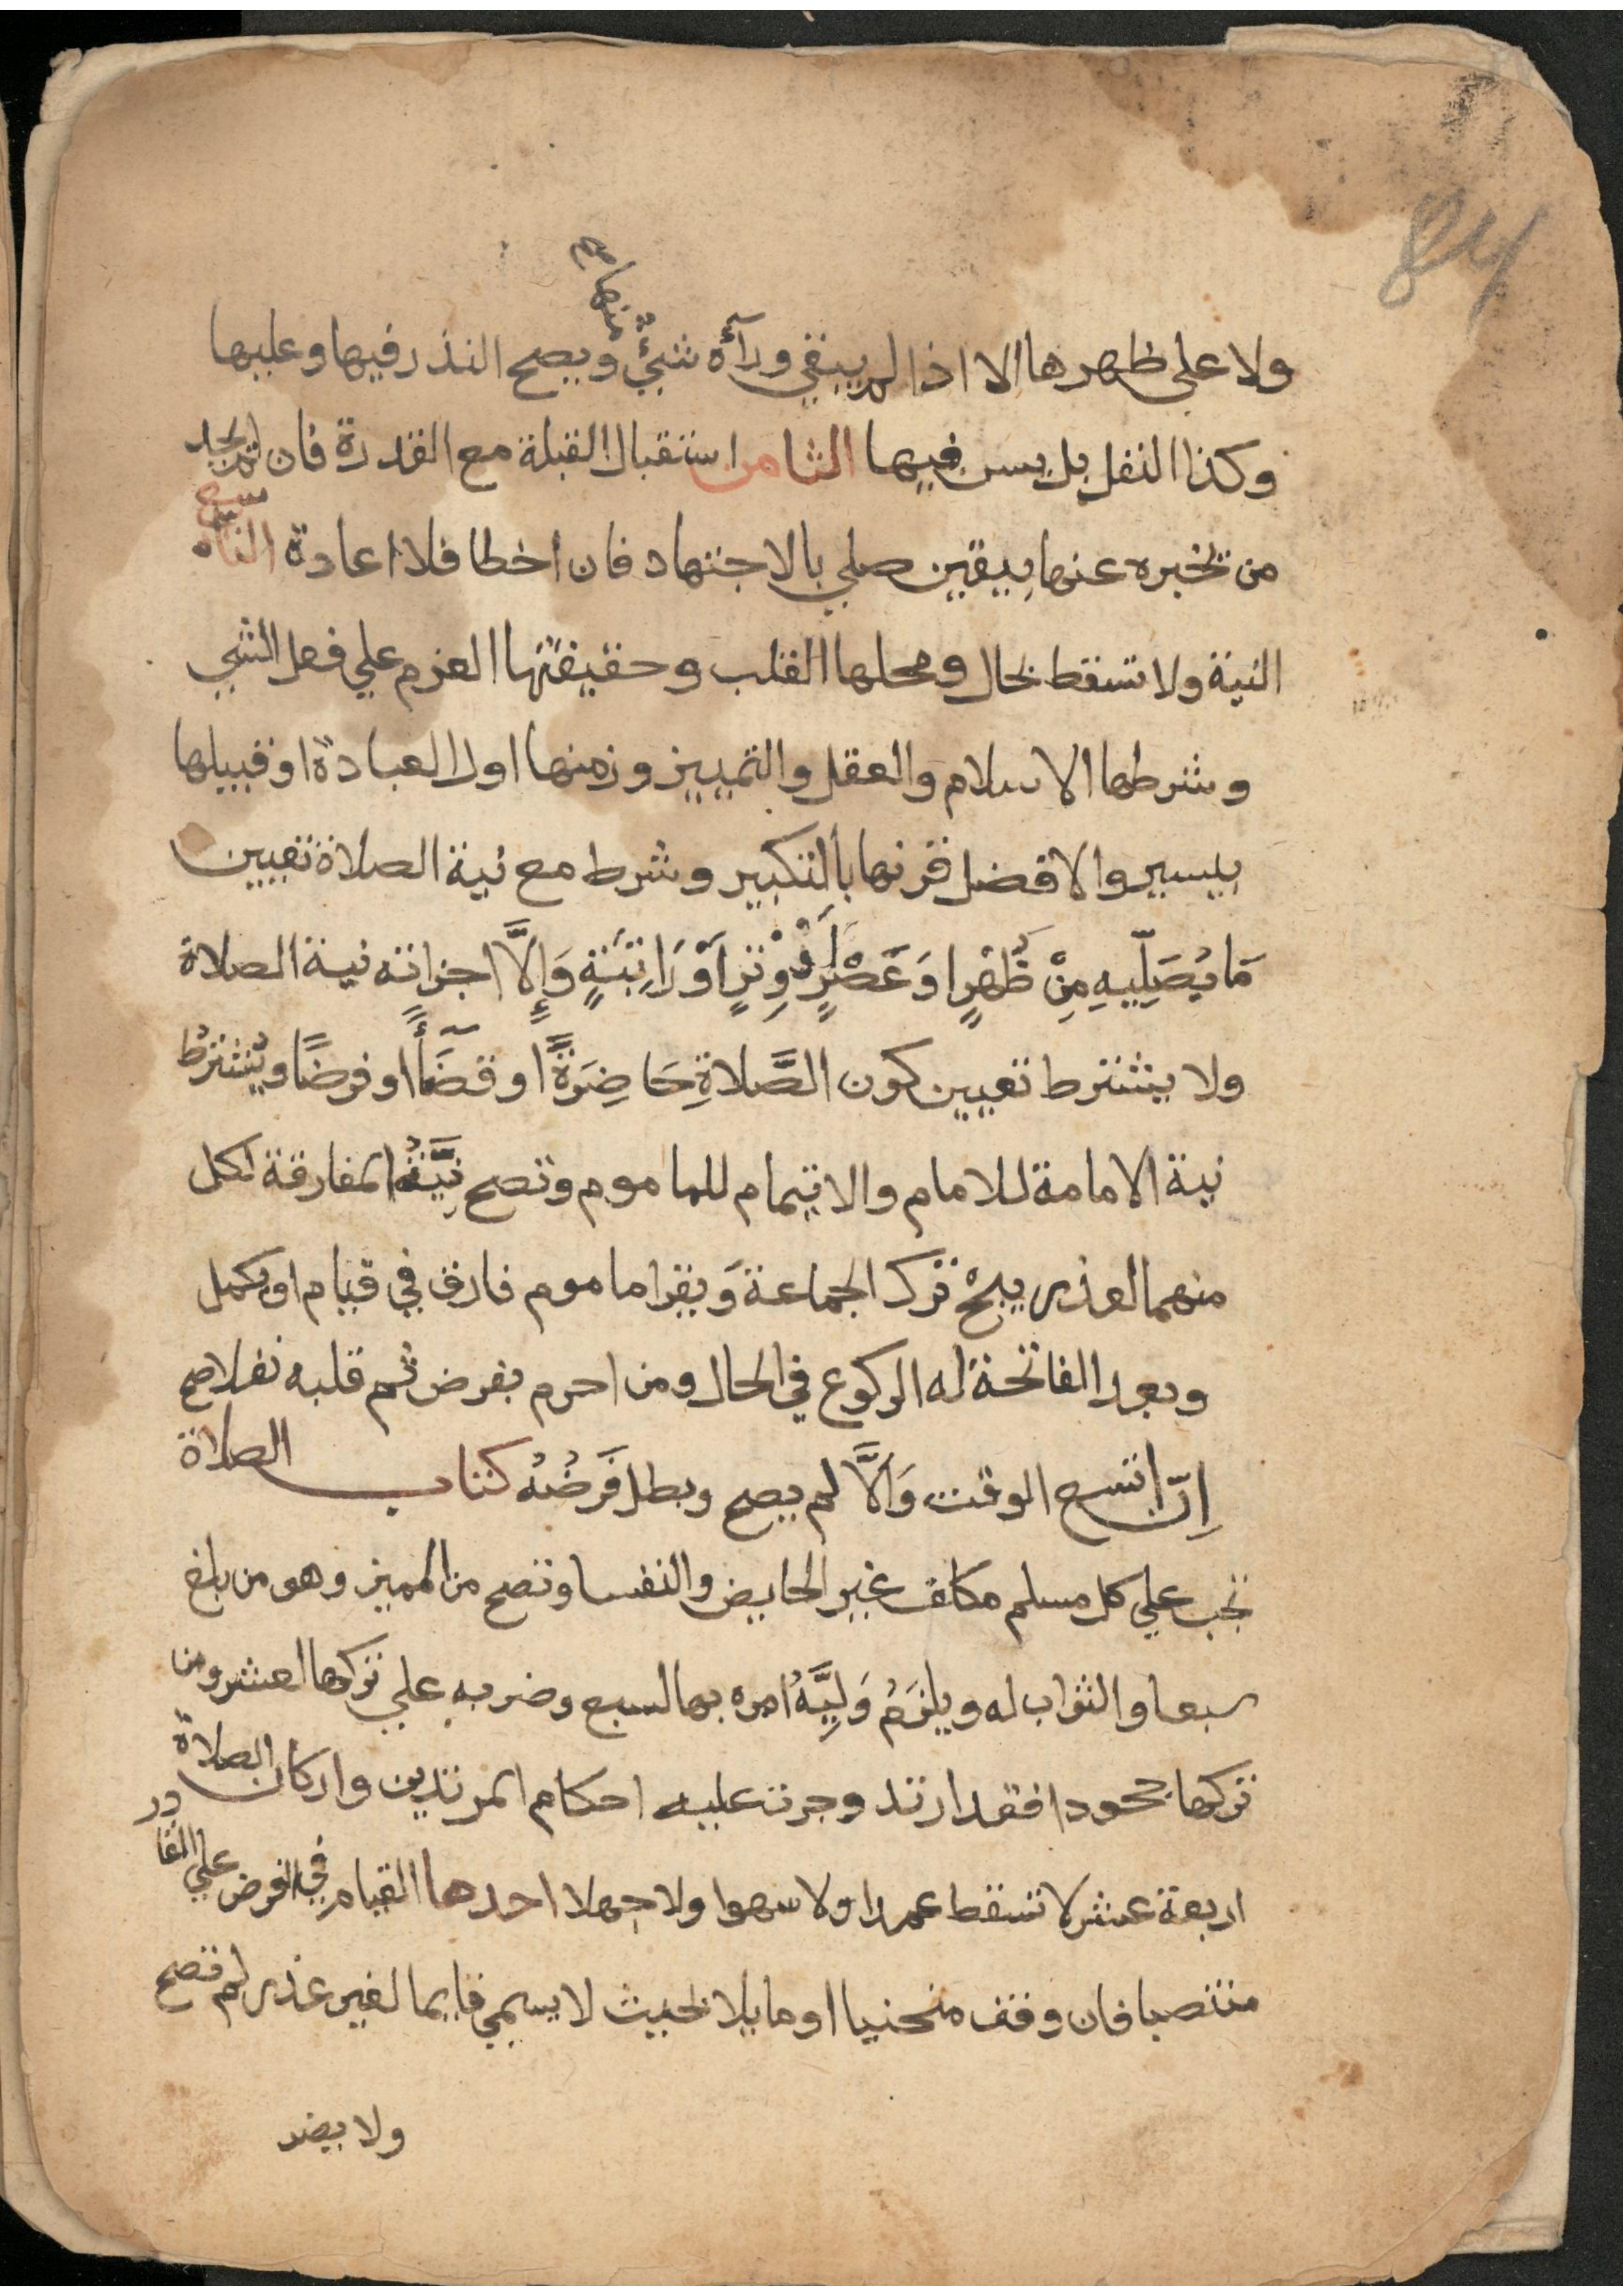 84
منها صح
ولا على ظهرها الا اذا لم يبقى ورآءه شيئٌ ويصح النذر فيها وعليها
وكذا النفل بل يسن فيها الثامن استقبال القبلة مع القدرة فان لم يجد
من يخبره عنها بيقين صلي بالاجتهاد فان اخطا فلا اعادة التاسع
النية ولا تسقط بحال ومحلها القلب وحقيقتها العزم علي فعل الشي
وشرطها الاسلام والعقل والتمييز وزمنها اول العبادة او قبيلها
بيسير والافضل قرنها بالتكبير وشرط مع نية الصلاة تعيين
مَا يُصَلِّيهِ مِنْ ظُهْرٍ اوَ عَصْرٍ أَوْ وِتْرٍ اَوْ رَاتِبَةٍ وَإِلَّا اجزاته نية الصلاة
ولا يشترط تعيين كون الصَّلاةِ حَاضِرَةً او قضَآءً او فرضًا ويُشترطُ
نية الامامة للامام والايتمام للماموم وتصح نِيَّةُ المفارقة لكل
منهما لعذر يبحْ ترك الجماعة وَيقرا ماموم فارق في قيام او يكمل
وبعد الفاتحة له الركوع في الحال ومن احرم بفرض ثم قلبه نفلا صح
اِنّ اتسع الوقت وَالَّا لم يصح وبطل فَرَضُهُ كتاب الصلاة
تجب علي كل مسلم مكلف غير الحايض والنفسا وتصح من المميز وهو من بلغ
سبعا والثواب له ويلزَمُ وَلِيَّهُ امره بها لسبع وضربه علي تركها لعشر ومن
تركها جحودا فقد ارتد وجرت عليه احكام المرتدين واركان الصلاة
اربعة عشر لا تسقط عمدا ولا سهوا ولا جهلا احدها القيام في الفرض علي القادر
منتصبا فان وقف منحنيا او مايلا بحيث لا يسمي قايما لغير عذر لم تصح
ولا يضر